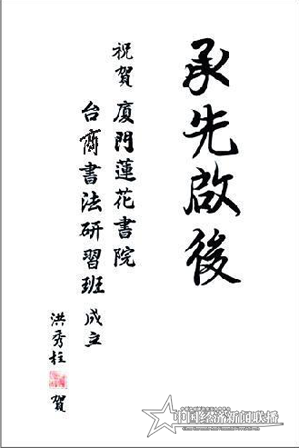 承先啟後
祝賀廈門蓮花書院
台商書法研習班成立
洪秀柱賀
中国经济新闻联播